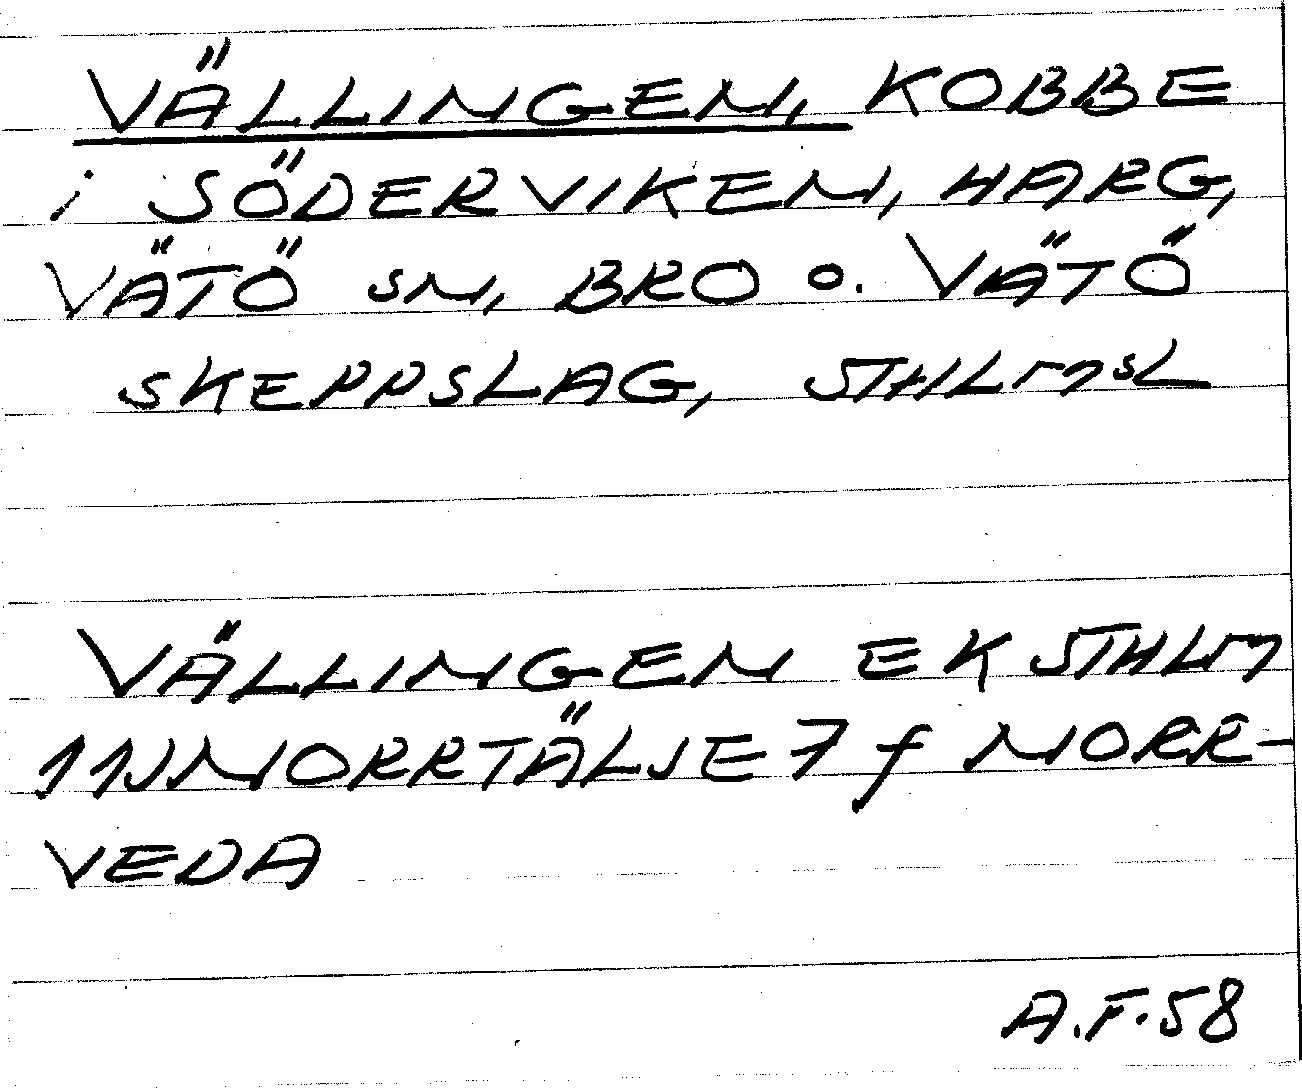 VÄLLINGEN, KOBBE
i SÖDERVIKEN, HARG,
VÄTÖ SN, BRO O. VÄTÖ
SKEPPSLAG, STHLMSL
VÄLLINGEN EK STHLM
11J NORRTÄLJE 7 f NORR-
VEDA
A.F. 58